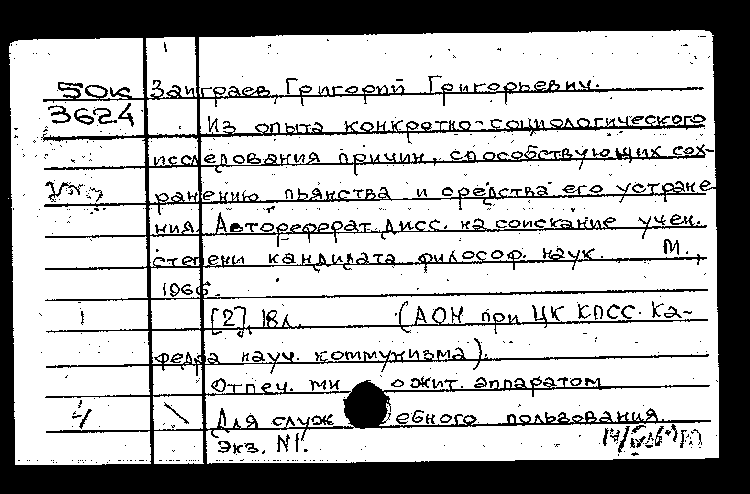 50к Заиграев, Григорий Григорьевич.
3624
Из опыта конкретно-социологического
исследования причин, способствующих сох-
ранению пьянства и средства его устране-
ния. Автореферат дисс. на соискание учен.
степени кандидата философ. наук. М.,
1966.
1 [2], 18 л. (АОН при ЦК КПСС. Ка-
федра науч. коммунизма).
Отпеч. мн ожит. аппаратом
4 Для служ ебного пользования.
Экз. N1.